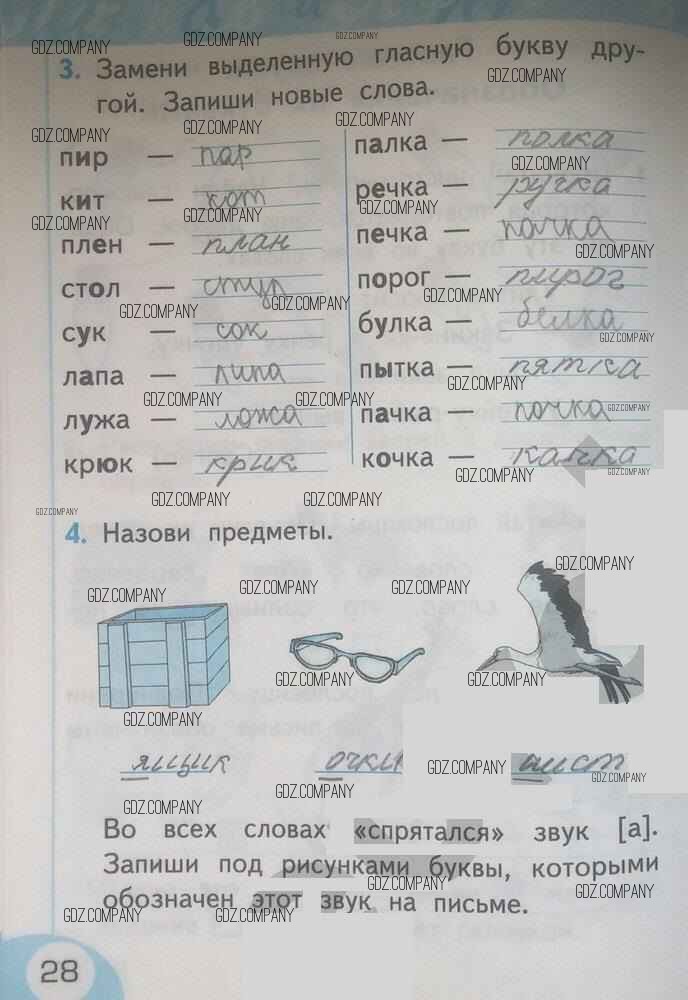 3. Замени выделенную гласную букву дру-
гой. Запиши новые слова.
пир — пар
кит — кот
плен — план
стол — стул
сук — сок
лапа — липа
лужа — ложа
крюк — крик
палка — полка
речка — ручка
печка — почка
порог — пирог
булка — белка
пытка — пятка
пачка — почка
кочка — качка
4. Назови предметы.
ящик очки аист
Во всех словах «спрятался» звук [а].
Запиши под рисунками буквы, которыми
обозначен этот звук на письме.
28
GDZ.COMPANY